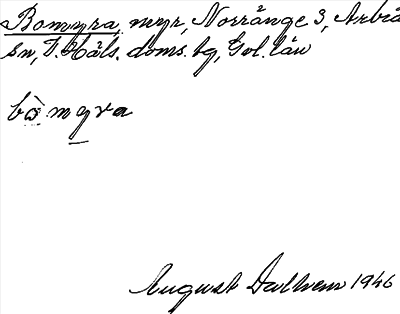 Bomyra, myr, Norränge 3, Arbrå
sn, V. Häls. doms. bg, Gvl. län
bò̤myra
August Dalhem 1946